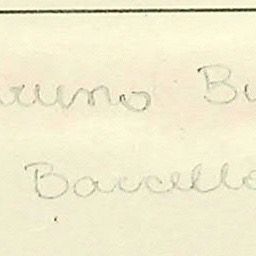 runo Bu
Barcello